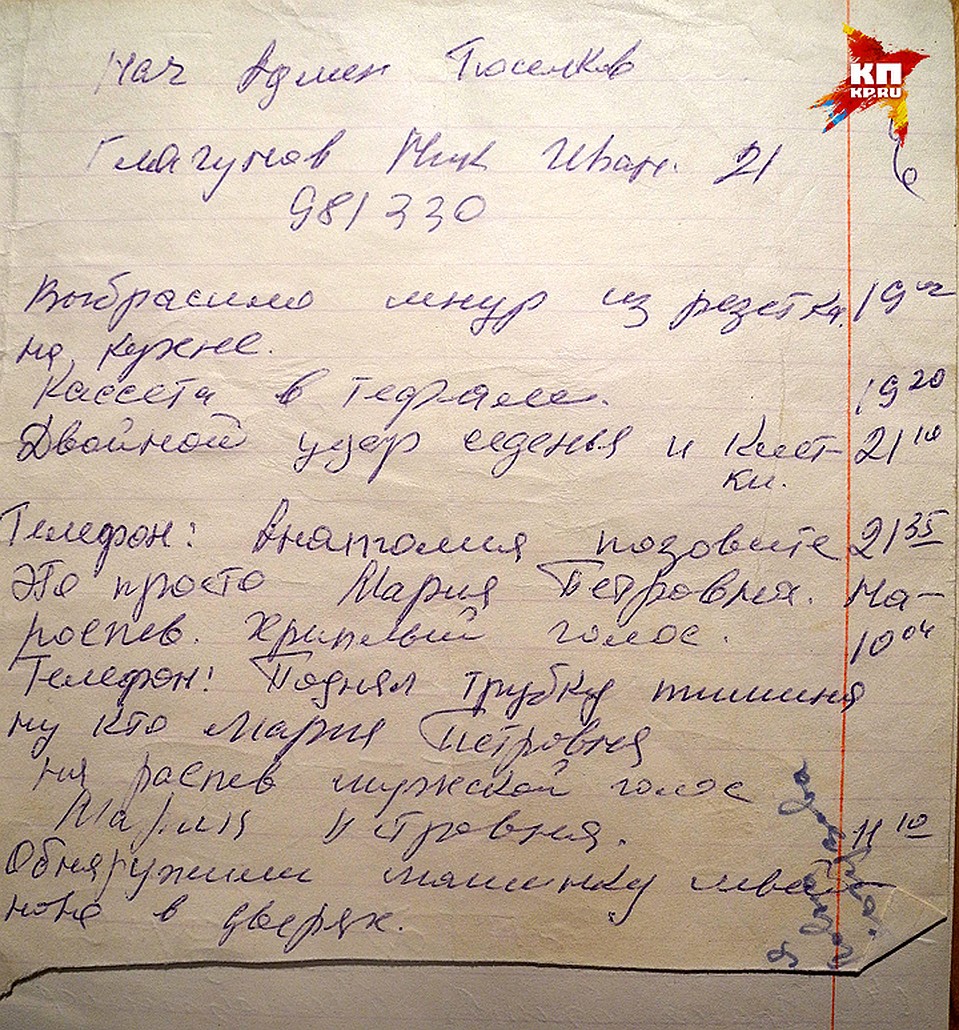 Нач Админ Поселков
КП
KP.RU
Глагунов Ник Иван. 21
981330
Выбрасило шнур из резетки. 19 ч
на кухне.
Кассета в тефале. 19 20
Двойной удар сиденья и Клет- 21 10
ки.
Телефон: Анатолия позовите 21 35
Это просто Мария Петровна. На-
роспев. Хриплый голос. 10 04
Телефон: Поднял трубку тишина
ну кто Мария Петровна
на распев мужской голос
Мария Петровня. 11 10
Обнаружили машинку швей
ноя в дверях.